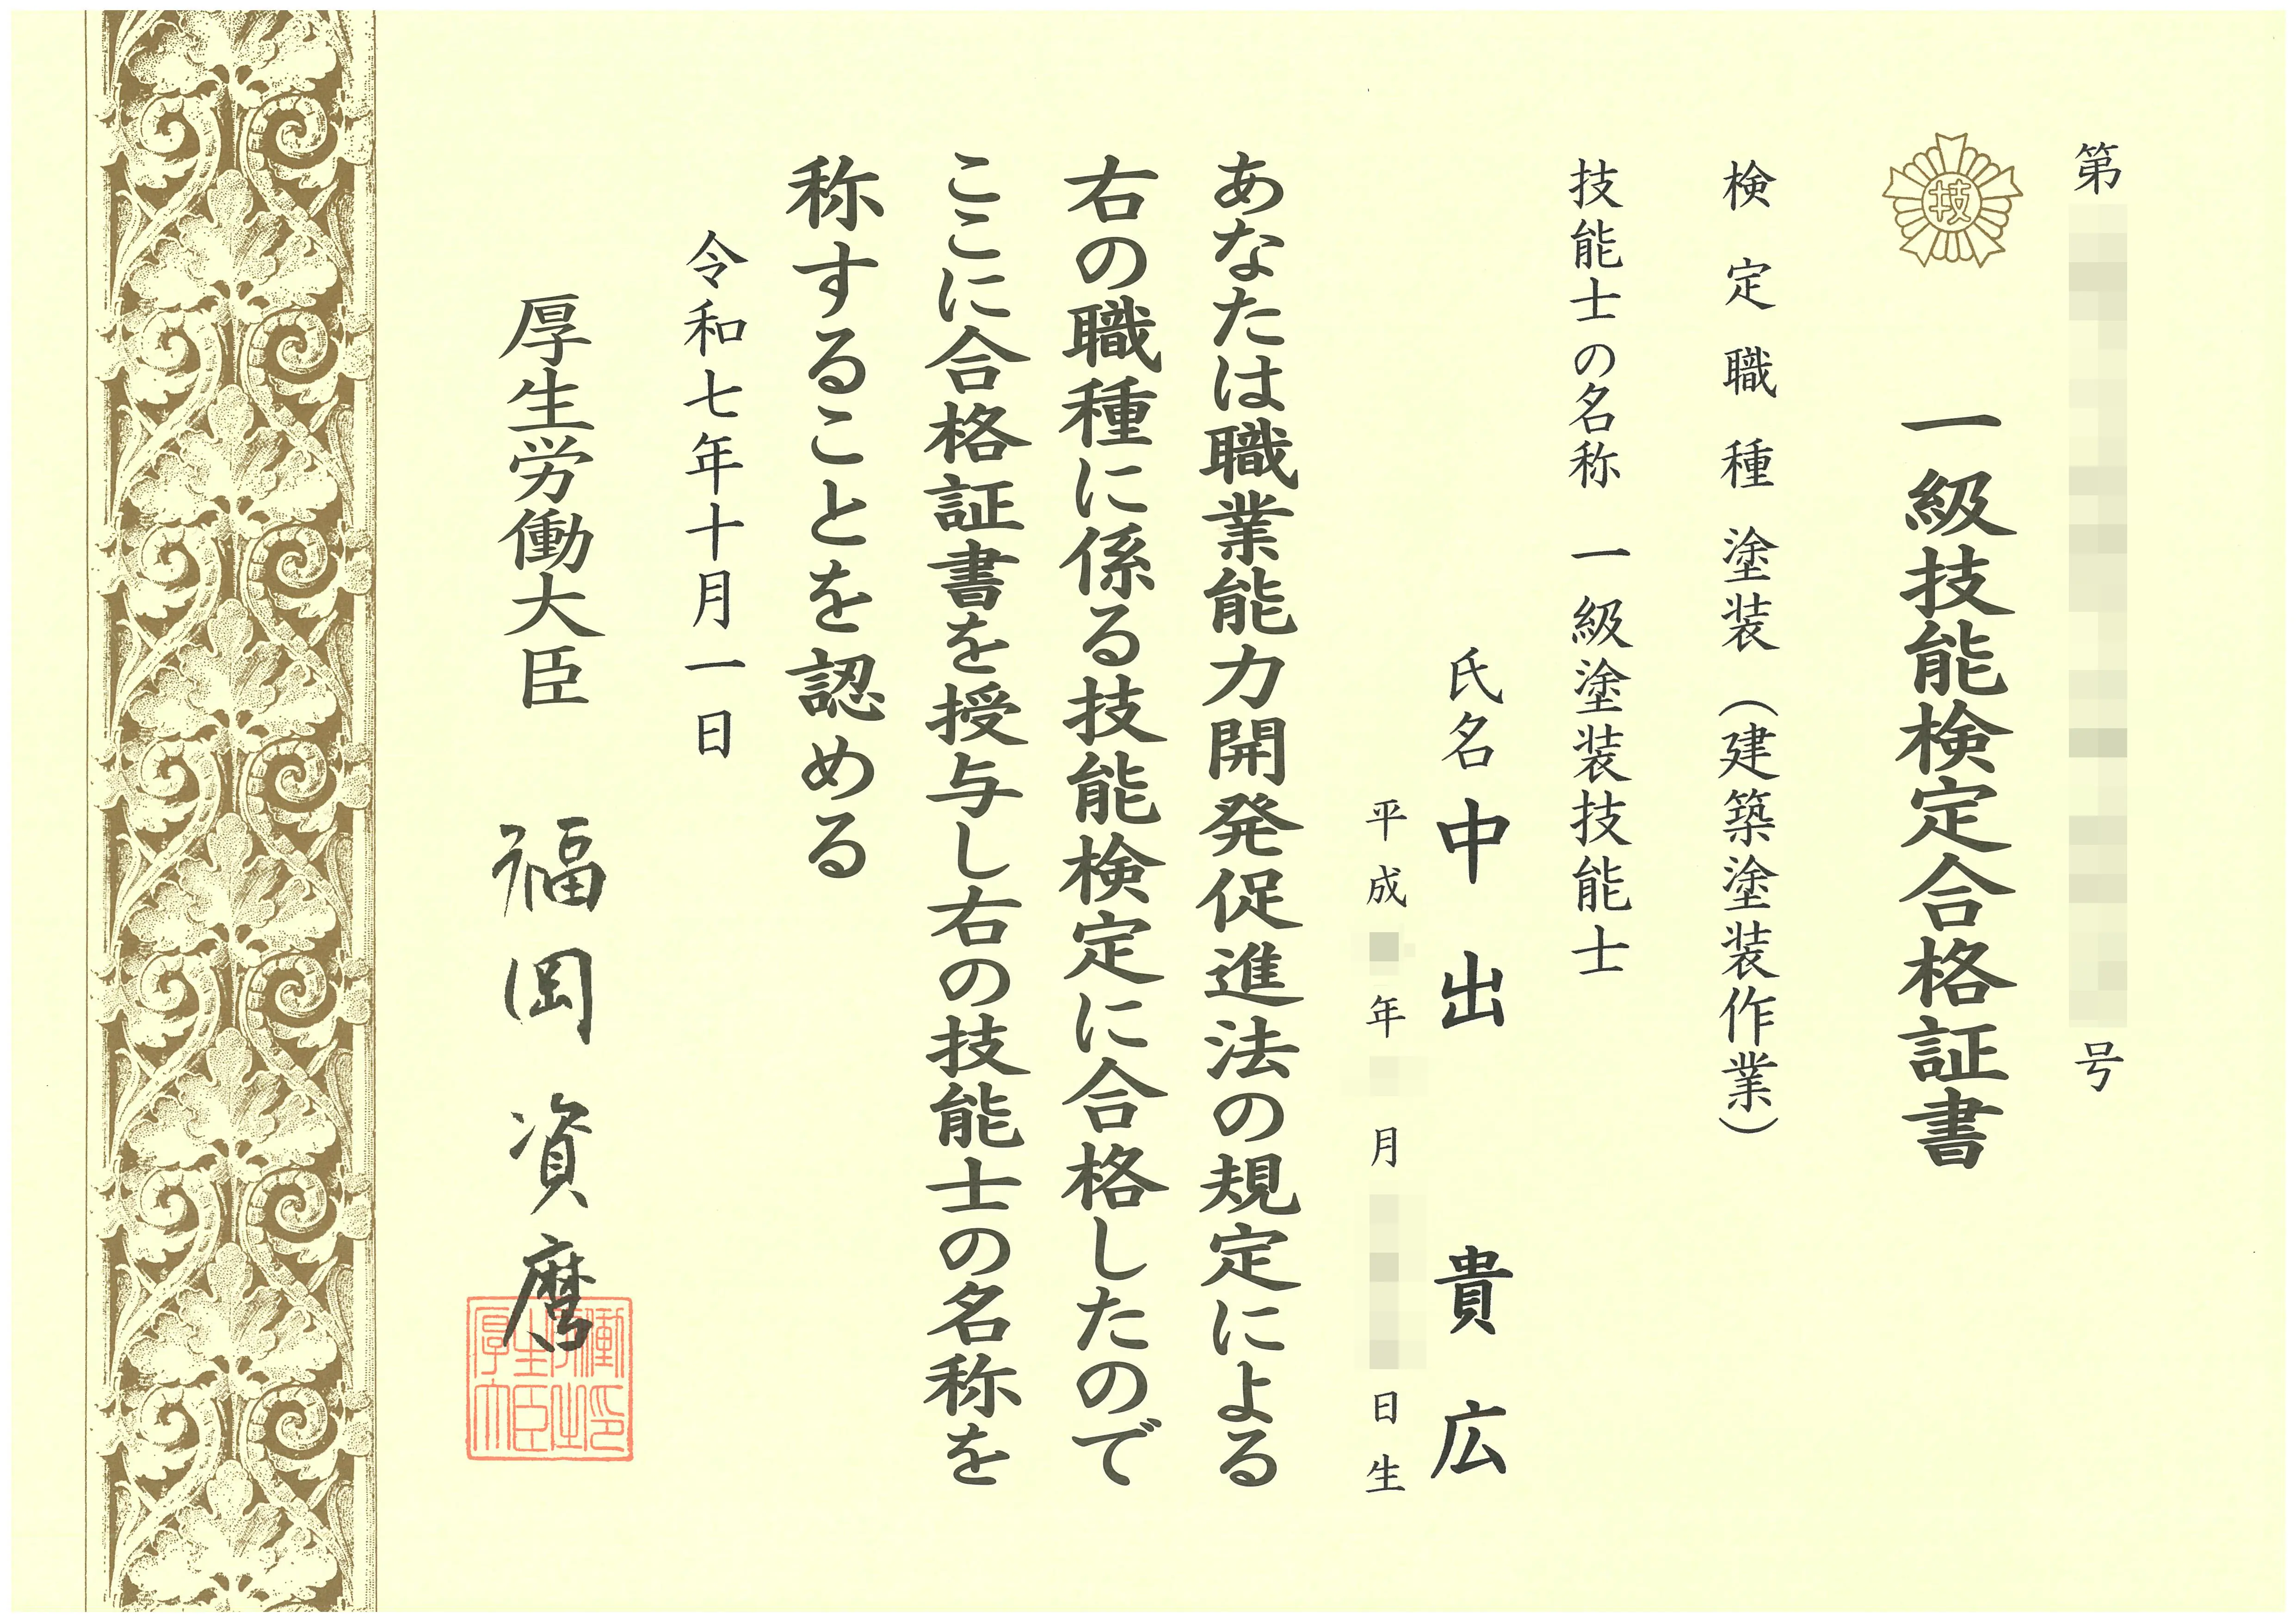 第 号
技
一級技能検定合格証書
検定職種 塗装（建築塗装作業）
技能士の名称 一級塗装技能士
氏名 中出 貴広
平成 年 月 日生
あなたは職業能力開発促進法の規定による
右の職種に係る技能検定に合格したので
ここに合格証書を授与し右の技能士の名称を
称することを認める
令和七年十月一日
厚生労働大臣 福岡資麿
厚生労働大臣之印